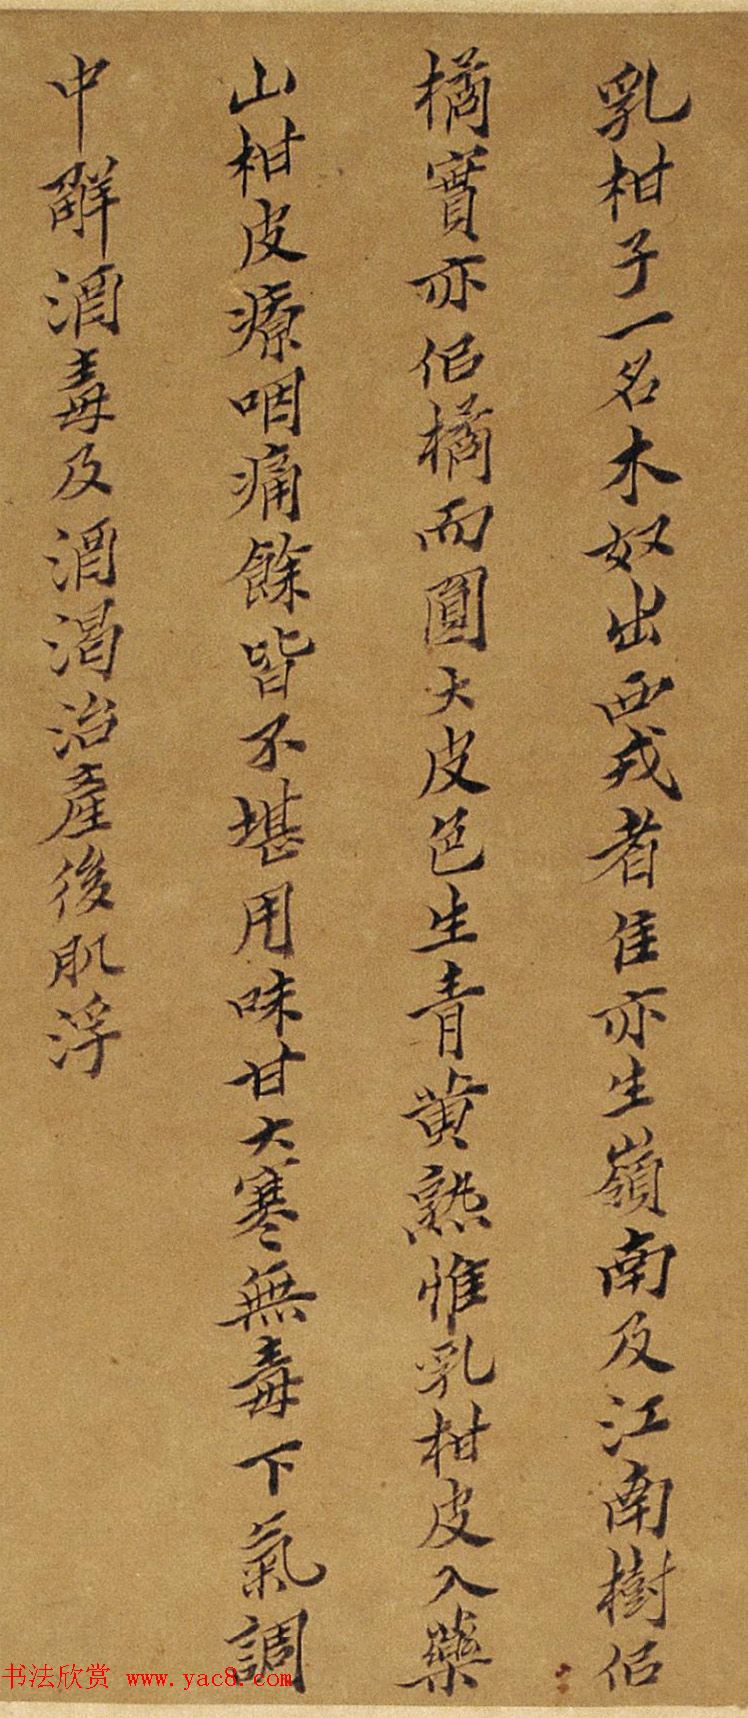 乳柑子一名木奴出西戎者佳亦生嶺南及江南樹佀
橘實亦佀橘而圓大皮色生青黄熟惟乳柑皮入藥
山柑皮療咽痛餘皆不堪用味甘大寒無毒下氣調
中解酒毒及酒渴治產後肌浮
书法欣赏 www.yac8.com